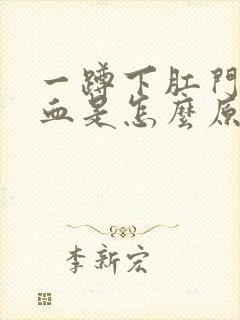 一蹲下肛門
血是怎麼原
李新宏